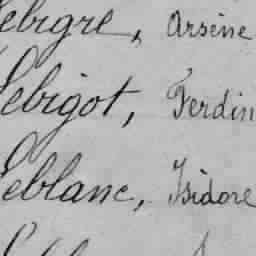 Lebigre, Arsène
Lebigot, Ferdin
Leblanc, Isidore